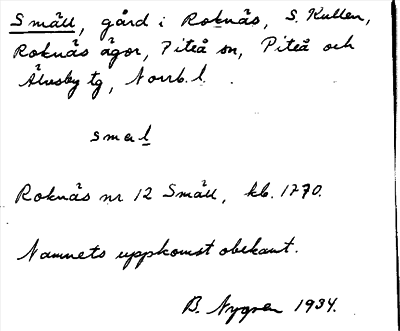 Smäll, gård i Roknäs, S. Kullen,
Roknäs ägor, Piteå sn, Piteå och
Älvsby tg, Norrb. l.
smäl
Roknäs nr 12 Smäll, kb. 1770.
Namnets uppkomst obekant.
B. Nygren 1934.